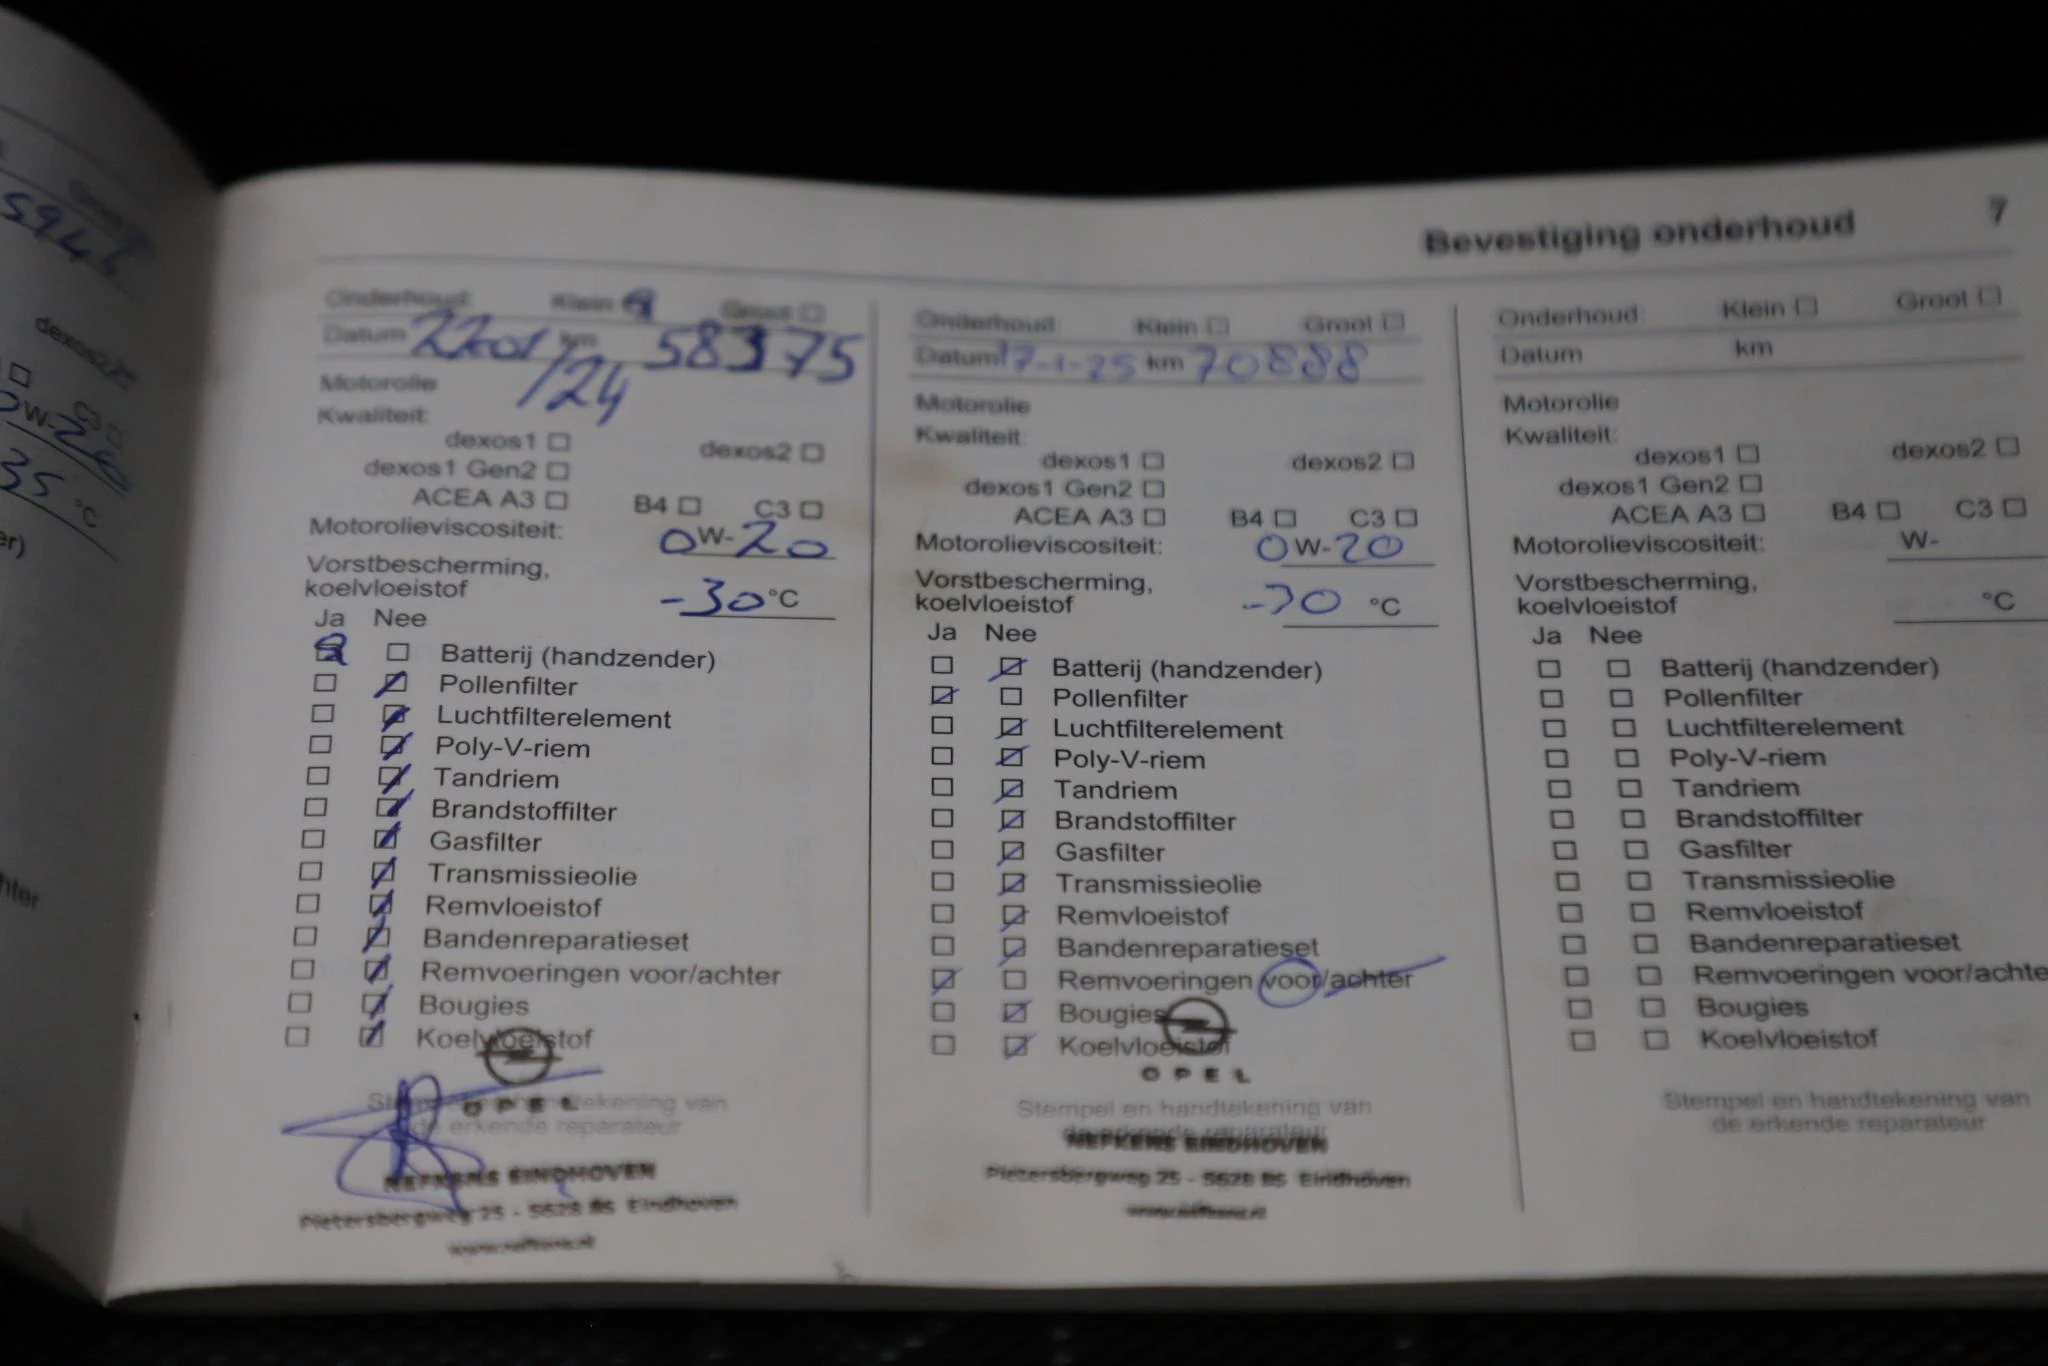 5944
dexos2
C3
W-20
35 °C
er)
hter
Bevestiging onderhoud 7
Onderhoud: Klein Groot
Datum 22-01/24 km 58375
Motorolie
Kwaliteit:
dexos1 dexos2
dexos1 Gen2
ACEA A3 B4 C3
Motorolieviscositeit: 0W-20
Vorstbescherming,
koelvloeistof -30 °C
Ja Nee
Batterij (handzender)
Pollenfilter
Luchtfilterelement
Poly-V-riem
Tandriem
Brandstoffilter
Gasfilter
Transmissieolie
Remvloeistof
Bandenreparatieset
Remvoeringen voor/achter
Bougies
Koelvloeistof
OPEL
Stempel en handtekening van
de erkende reparateur
NEFKENS EINDHOVEN
Pietersbergweg 25 - 5628 BS Eindhoven
Onderhoud: Klein Groot
Datum 17-1-25 km 70888
Motorolie
Kwaliteit:
dexos1 dexos2
dexos1 Gen2
ACEA A3 B4 C3
Motorolieviscositeit: 0W-20
Vorstbescherming,
koelvloeistof -30 °C
Ja Nee
Batterij (handzender)
Pollenfilter
Luchtfilterelement
Poly-V-riem
Tandriem
Brandstoffilter
Gasfilter
Transmissieolie
Remvloeistof
Bandenreparatieset
Remvoeringen voor/achter
Bougies
Koelvloeistof
OPEL
Stempel en handtekening van
de erkende reparateur
NEFKENS EINDHOVEN
Pietersbergweg 25 - 5628 BS Eindhoven
Onderhoud: Klein Groot
Datum km
Motorolie
Kwaliteit:
dexos1 dexos2
dexos1 Gen2
ACEA A3 B4 C3
Motorolieviscositeit: W-
Vorstbescherming,
koelvloeistof °C
Ja Nee
Batterij (handzender)
Pollenfilter
Luchtfilterelement
Poly-V-riem
Tandriem
Brandstoffilter
Gasfilter
Transmissieolie
Remvloeistof
Bandenreparatieset
Remvoeringen voor/achte
Bougies
Koelvloeistof
Stempel en handtekening van
de erkende reparateur